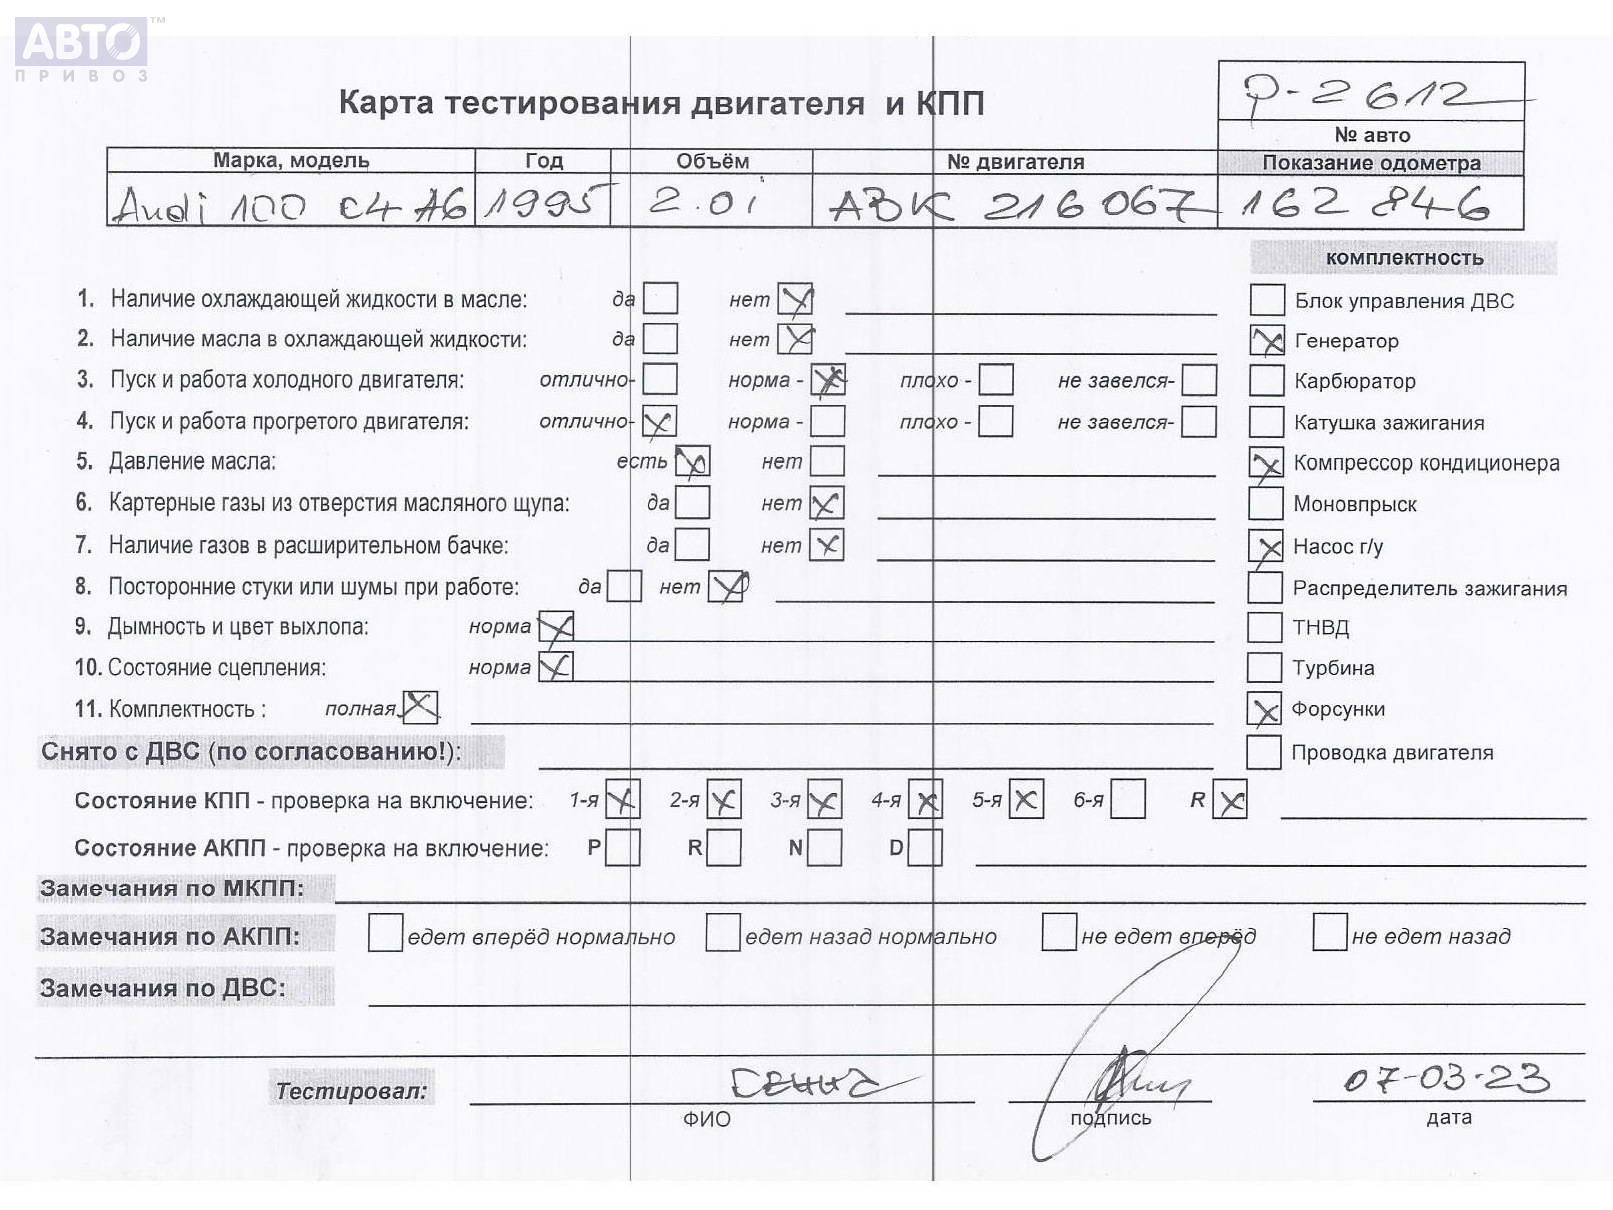 АВТО™
ПРИВОЗ
Карта тестирования двигателя и КПП
Р-2612
№ авто
Марка, модель Год Объём № двигателя Показание одометра
Audi 100 C4 A6 1995 2.0i ABK 216067 162 846
комплектность
1. Наличие охлаждающей жидкости в масле: да нет Блок управления ДВС
2. Наличие масла в охлаждающей жидкости: да нет Генератор
3. Пуск и работа холодного двигателя: отлично- норма - плохо - не завелся- Карбюратор
4. Пуск и работа прогретого двигателя: отлично- норма - плохо - не завелся- Катушка зажигания
5. Давление масла: есть нет Компрессор кондиционера
6. Картерные газы из отверстия масляного щупа: да нет Моновпрыск
7. Наличие газов в расширительном бачке: да нет Насос г/у
8. Посторонние стуки или шумы при работе: да нет Распределитель зажигания
9. Дымность и цвет выхлопа: норма ТНВД
10. Состояние сцепления: норма Турбина
11. Комплектность : полная Форсунки
Снято с ДВС (по согласованию!): Проводка двигателя
Состояние КПП - проверка на включение: 1-я 2-я 3-я 4-я 5-я 6-я R
Состояние АКПП - проверка на включение: P R N D
Замечания по МКПП:
Замечания по АКПП: едет вперёд нормально едет назад нормально не едет вперёд не едет назад
Замечания по ДВС:
Тестировал: 07-03-23
ФИО подпись дата